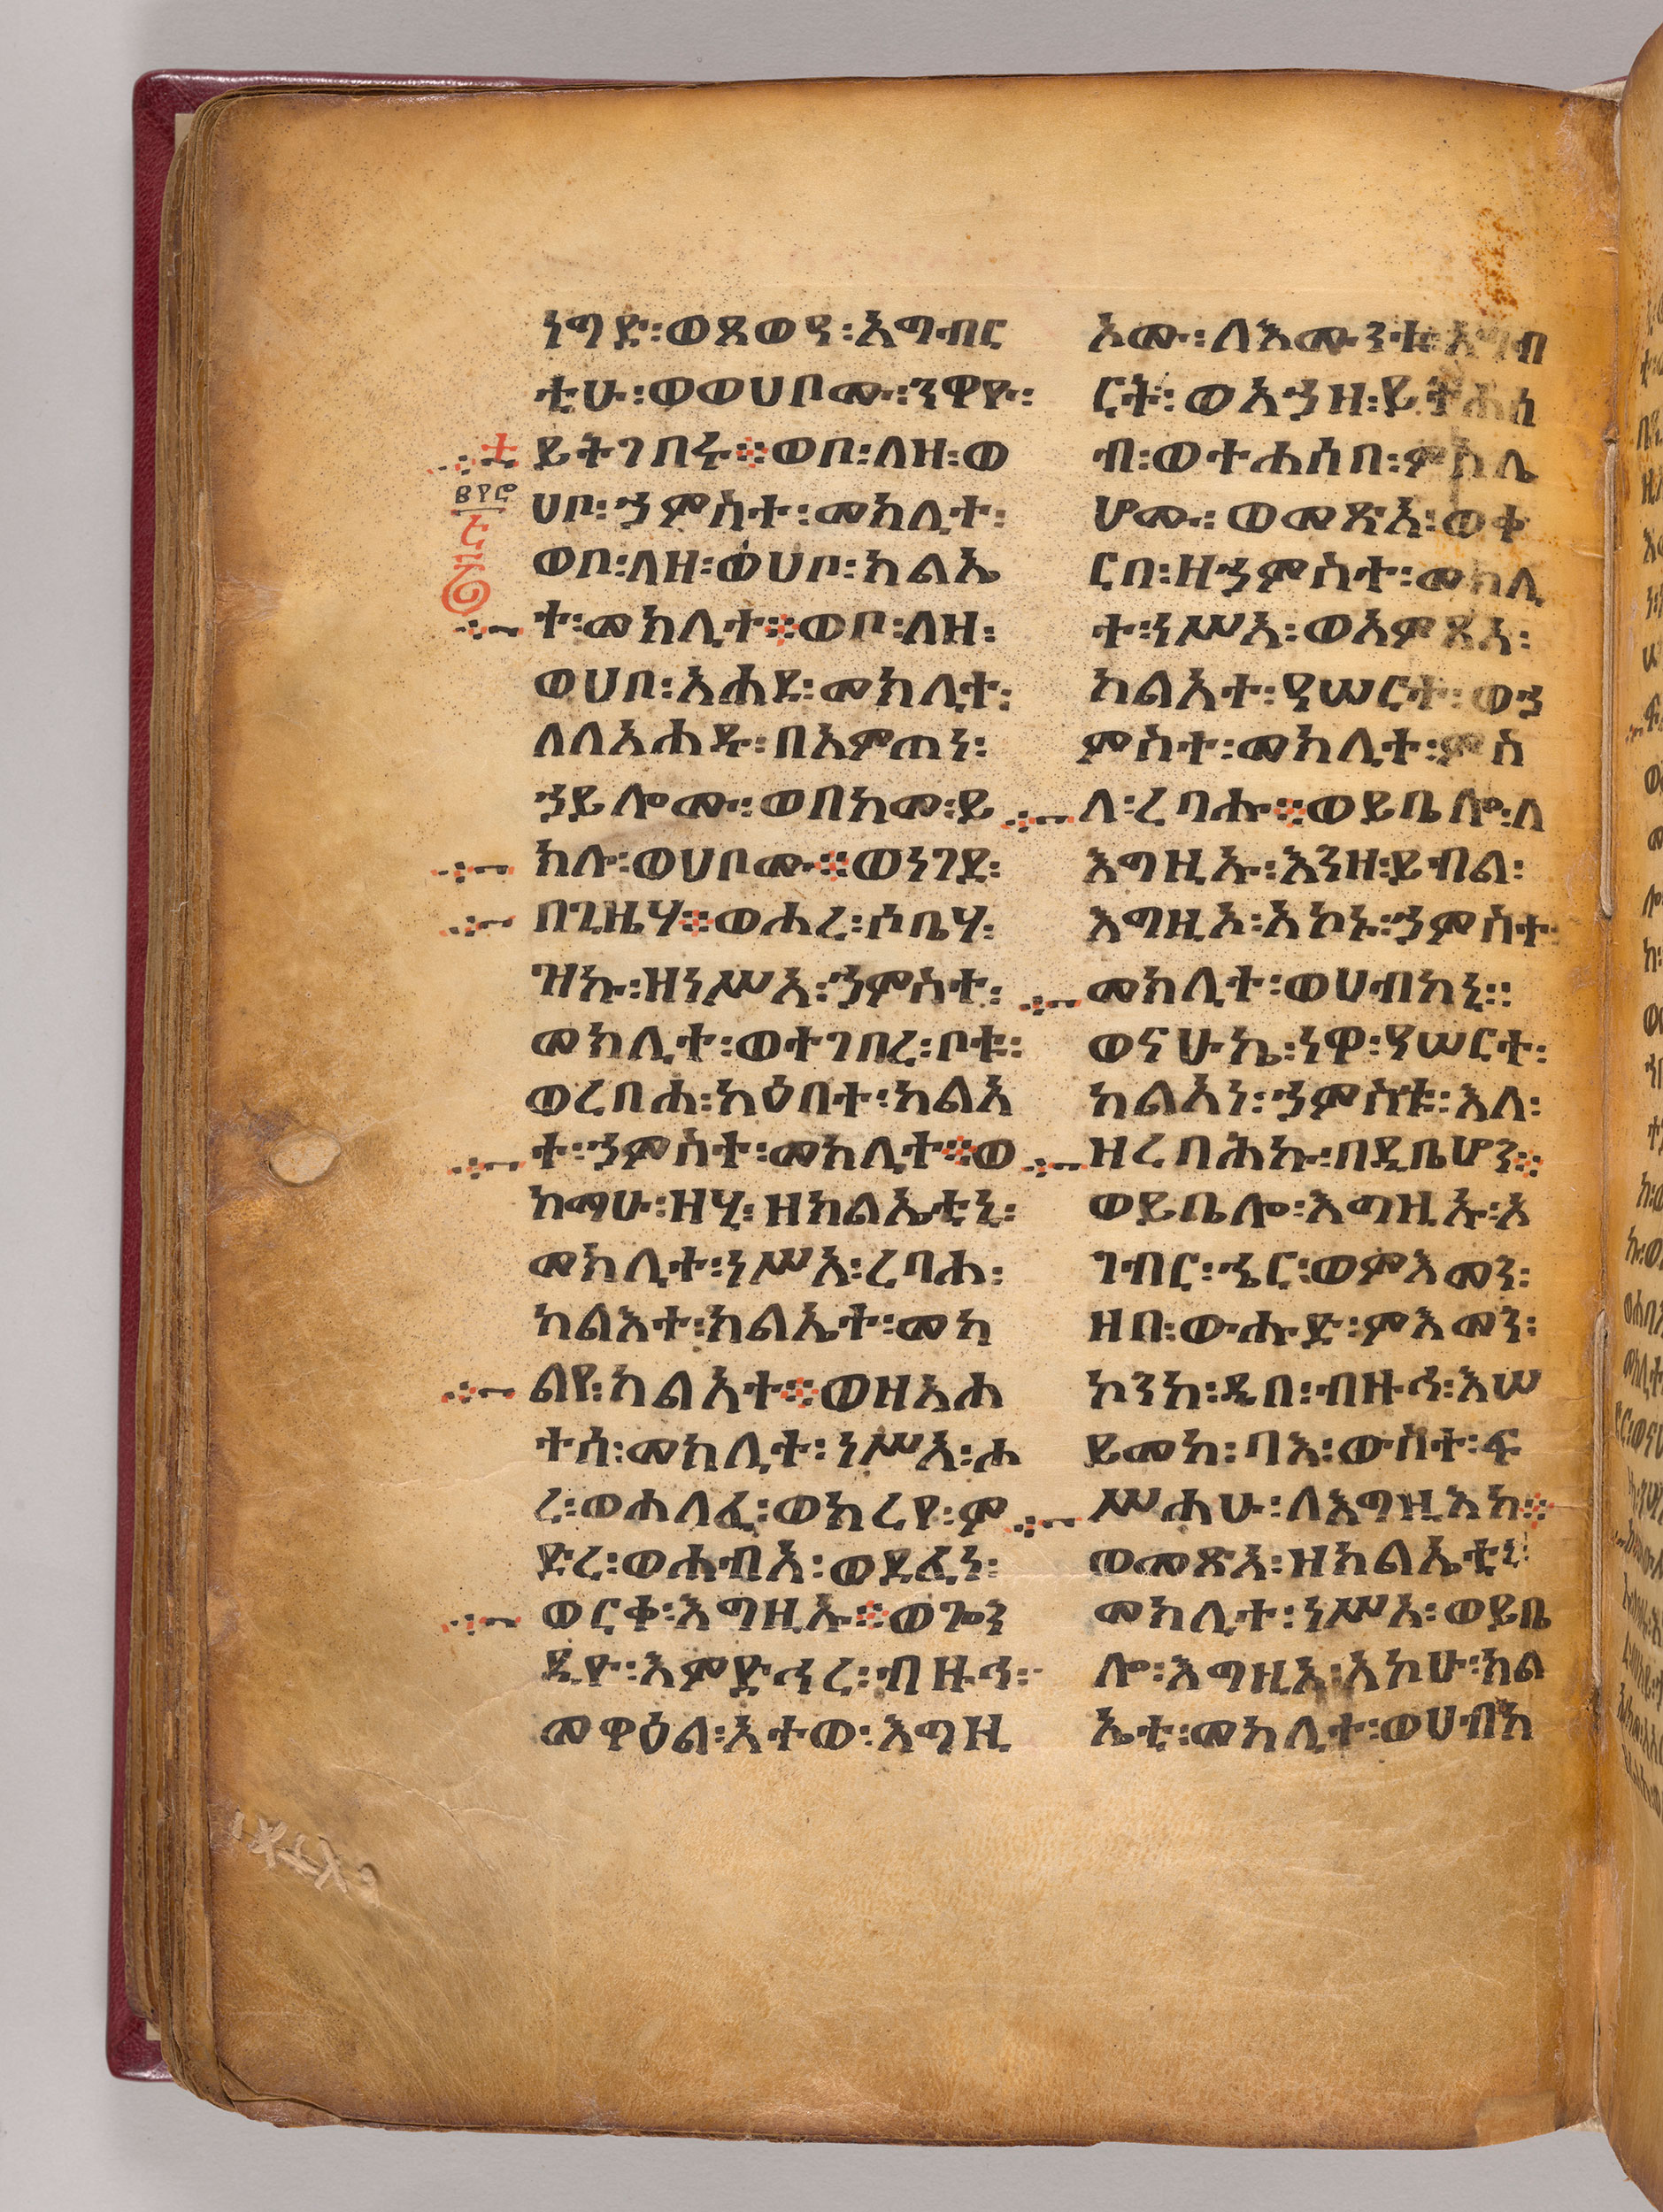 ነግድ፡ወጸወዓ፡አግብር
ቲሁ፡ወወሀቦሙ፡ንዋየ፡
ይትገበሩ፨ወቦ፡ለዘ፡ወ
ሀቦ፡ኃምስተ፡መክሊተ፡
ወቦ፡ለዘ፡ወሀቦ፡ክልኤ
ተ፡መክሊተ፨ወቦ፡ለዘ፡
ወሀቦ፡አሐደ፡መክሊተ፡
ለለአሐዱ፡በአምጠነ፡
ኃይሎሙ፡ወበከመ፡ይ
ክሉ፡ወሀቦሙ፨ወነገደ፡
በጊዜሃ፨ወሐረ፡ሶቤሃ፡
ዝኩ፡ዘነሥአ፡ኃምስተ፡
መክሊተ፡ወተገበረ፡ቦቱ፡
ወረብሐ፡ካዕበተ፡ካልአ
ተ፡ኃምስተ፡መክሊተ፨ወ
ከማሁ፡ዘሂ፡ዘክልኤቲኒ፡
መክሊተ፡ነሥአ፡ረባሐ፡
ካልአተ፡ክልኤተ፡መካ
ልየ፡ካልአተ፨ወዘአሐ
ተሰ፡መክሊተ፡ነሥአ፡ሐ
ረ፡ወሐለፈ፡ወከረየ፡ም
ድረ፡ወሐብአ፡ወደፈነ፡
ወርቀ፡እግዚኡ፨ወጐን
ዲዮ፡እምድኅረ፡ብዙኅ፡
መዋዕል፡አተወ፡እግዚ
ኦሙ፡ለእሙንቱ፡አግብ
ርት፡ወአኃዘ፡ይትሐሰ
ብ፡ወተሐሰበ፡ምስሌ
ሆሙ፡ወመጽአ፡ወቀ
ርበ፡ዘኃምስተ፡መክሊ
ተ፡ነሥአ፡ወአምጽአ፡
ካልአተ፡ዓሠርተ፡ወኃ
ምስተ፡መክሊተ፡ምስ
ለ፡ረባሑ፨ወይቤሎ፡ለ
እግዚኡ፡እንዘ፡ይብል፡
እግዚኦ፡አኮኑ፡ኃምስተ፡
መክሊተ፡ወሀብከኒ፡፡
ወናሁኬ፡ነዋ፡ዓሠርተ፡
ካልአነ፡ኃምስቱ፡እለ፡
ዘረባሕኩ፡በዲቤሆን፨
ወይቤሎ፡እግዚኡ፡ኦ
ገብር፡ኄር፡ወምእመን፡
ዘበ፡ውሑድ፡ምእመን፡
ኮንከ፡ዲበ፡ብዙኅ፡እሠ
ይመከ፡ባእ፡ውስተ፡ፍ
ሥሐሁ፡ለእግዚእከ፨
ወመጽአ፡ዘክልኤቲኒ፡
መክሊተ፡ነሥአ፡ወይቤ
ሎ፡እግዚአ፡አኮሁ፡ክል
ኤቲ፡መክሊተ፡ወሀብከ